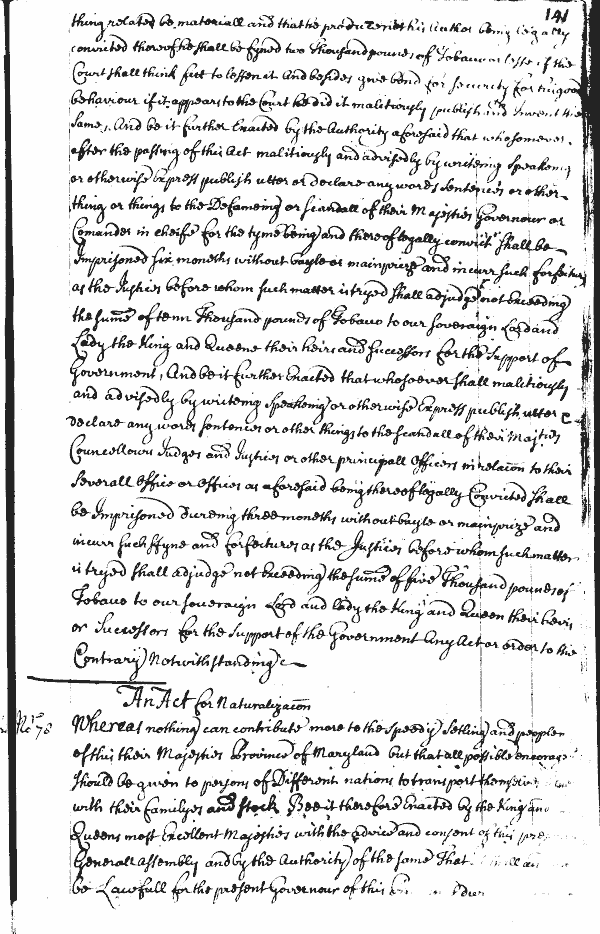 141
thing related be materiall and that he produceth his Author being legally
convicted thereof he shall be fyned two thousand pounds of Tobacco or lesse if the
Court shall think fitt to lessen it And besides give bond for security for his good
behaviour if it appears to the Court he did it malitiously publish and Invent the
same, And be it further Enacted by the Authority aforesaid that whosomever
after the passing of this Act malitiously and advisedly by writeing speaking
or otherwise Express publish utter or declare any words sentences or other
thing or things to the Defameing or scandall of their Majesties Governour or
Comander in cheife for the tyme being and thereof legally convict shall be
Imprisoned six moneths without bayle or mainprize and incurr such forfeiture
as the Justices before whom such matter is tryed shall adjudge not exceeding
the sume of tenn Thousand pounds of Tobacco to our soveraign Lord and
Lady the King and Queene their heirs and successors for the Support of
Government, And be it further Enacted that whosoever shall malitiously
and advisedly by writeing speakeing or otherwise Express publish utter or
declare any words sentences or other things to the scandall of their Majties
Councellours Judges and Justices or other principall officers in relacon to their
severall office or offices as aforesaid being thereof legally Convicted shall
be Imprisoned dureing three moneths without bayle or mainprize and
incurr such ffyne and forfeitures as the Justices before whom such matter
is tryed shall adjudge not Exceeding the sume of five Thousand pounds of
Tobacco to our soveraign Lord and lady the King and Queen their heirs
or Successors for the Support of the Government Any Act or order to the
Contrary Notwithstanding
An Act for Naturalizacon
Whereas nothing can contribute more to the speedy Setling and peopleing
of this their Majesties Province of Maryland but that all possible encourage
should be given to persons of Different nations to transport themselves
with their familyes and stock Bee it therefore Enacted by the King and
Queens most Excellent Majesties with the advice and consent of this
Generall assembly and by the Authority of the same That shall
be Lawfull for the present Governour of this